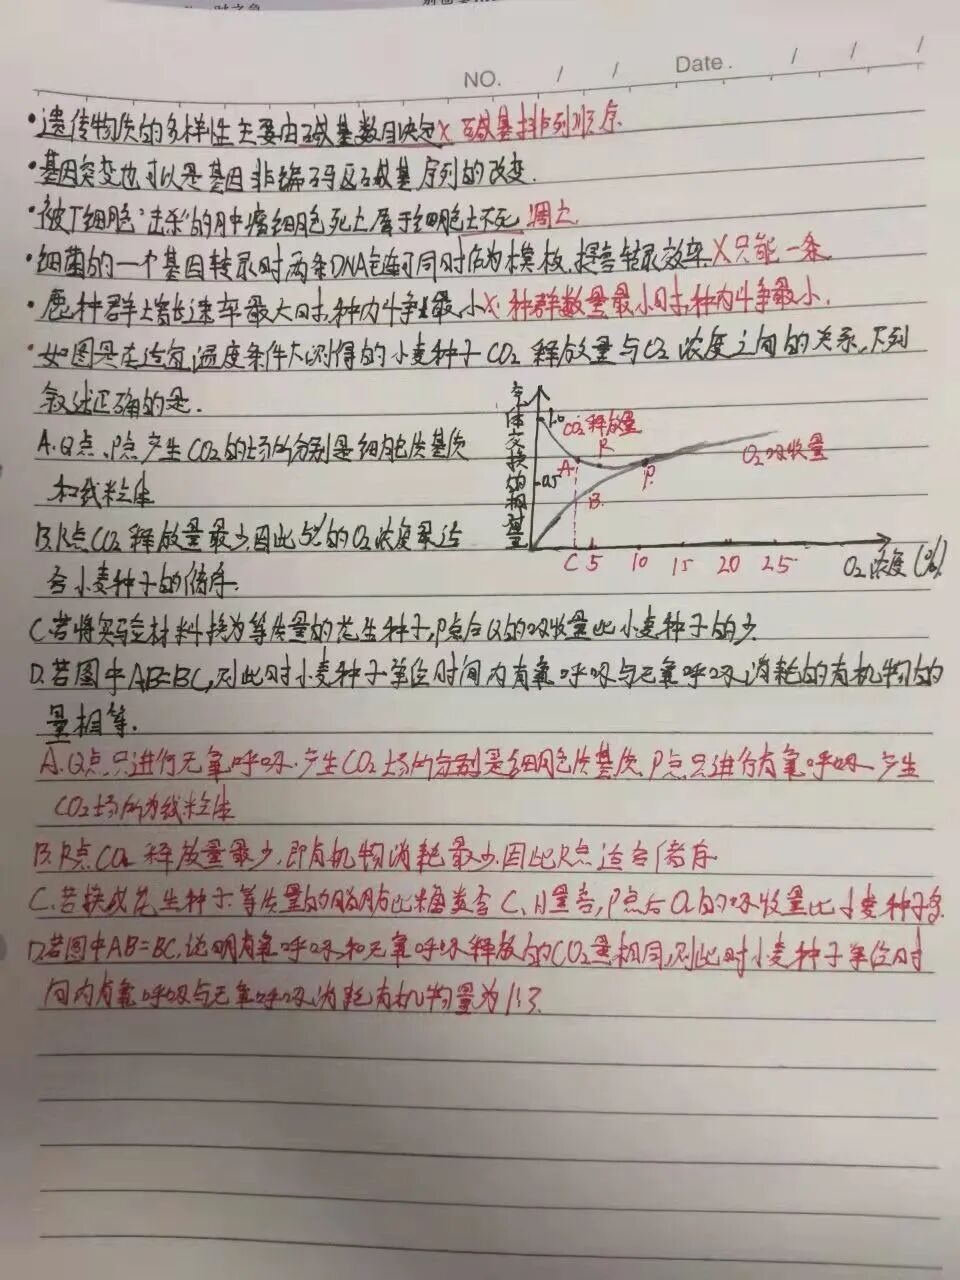 NO. / / Date. / / /
•遗传物质的多样性主要由碱基数目决定X 碱基排列顺序.
•基因突变也可以是基因非编码区碱基序列的改变.
•被T细胞"击杀"的肿瘤细胞死亡属于细胞坏死 凋亡
•细菌的一个基因转录时两条DNA链可同时作为模板,提高转录效率.X只能一条
•鹿种群增长速率最大时,种内斗争最小X.种群数量最小时,种内斗争最小.
•如图是在适宜温度条件下测得的小麦种子CO2释放量与O2浓度之间的关系,下列
叙述正确的是.
A.Q点、P点产生CO2的场所分别是细胞质基质
和线粒体
B.R点CO2释放量最少,因此5%的O2浓度最适
合小麦种子的储存.
气体交换的相对量
1.0
0.5
CO2释放量
R
A
P.
B
O2吸收量
C 5 10 15 20 25 O2浓度(%)
C.若将实验材料换为等质量的花生种子,P点后O2的吸收量比小麦种子的少.
D.若图中AB=BC,则此时小麦种子单位时间内有氧呼吸与无氧呼吸消耗的有机物的
量相等.
A.Q点只进行无氧呼吸.产生CO2场所分别是细胞质基质,P点只进行有氧呼吸 产生
CO2场所为线粒体
B.R点CO2释放量最少,即有机物消耗最少.因此R点适合储存
C.若换成花生种子.等质量的脂肪比糖类含C、H量高,P点后O2的吸收量比小麦种子多.
D.若图中AB=BC,说明有氧呼吸和无氧呼吸释放的CO2量相同,则此时小麦种子单位时
间内有氧呼吸与无氧呼吸消耗有机物量为1:3.